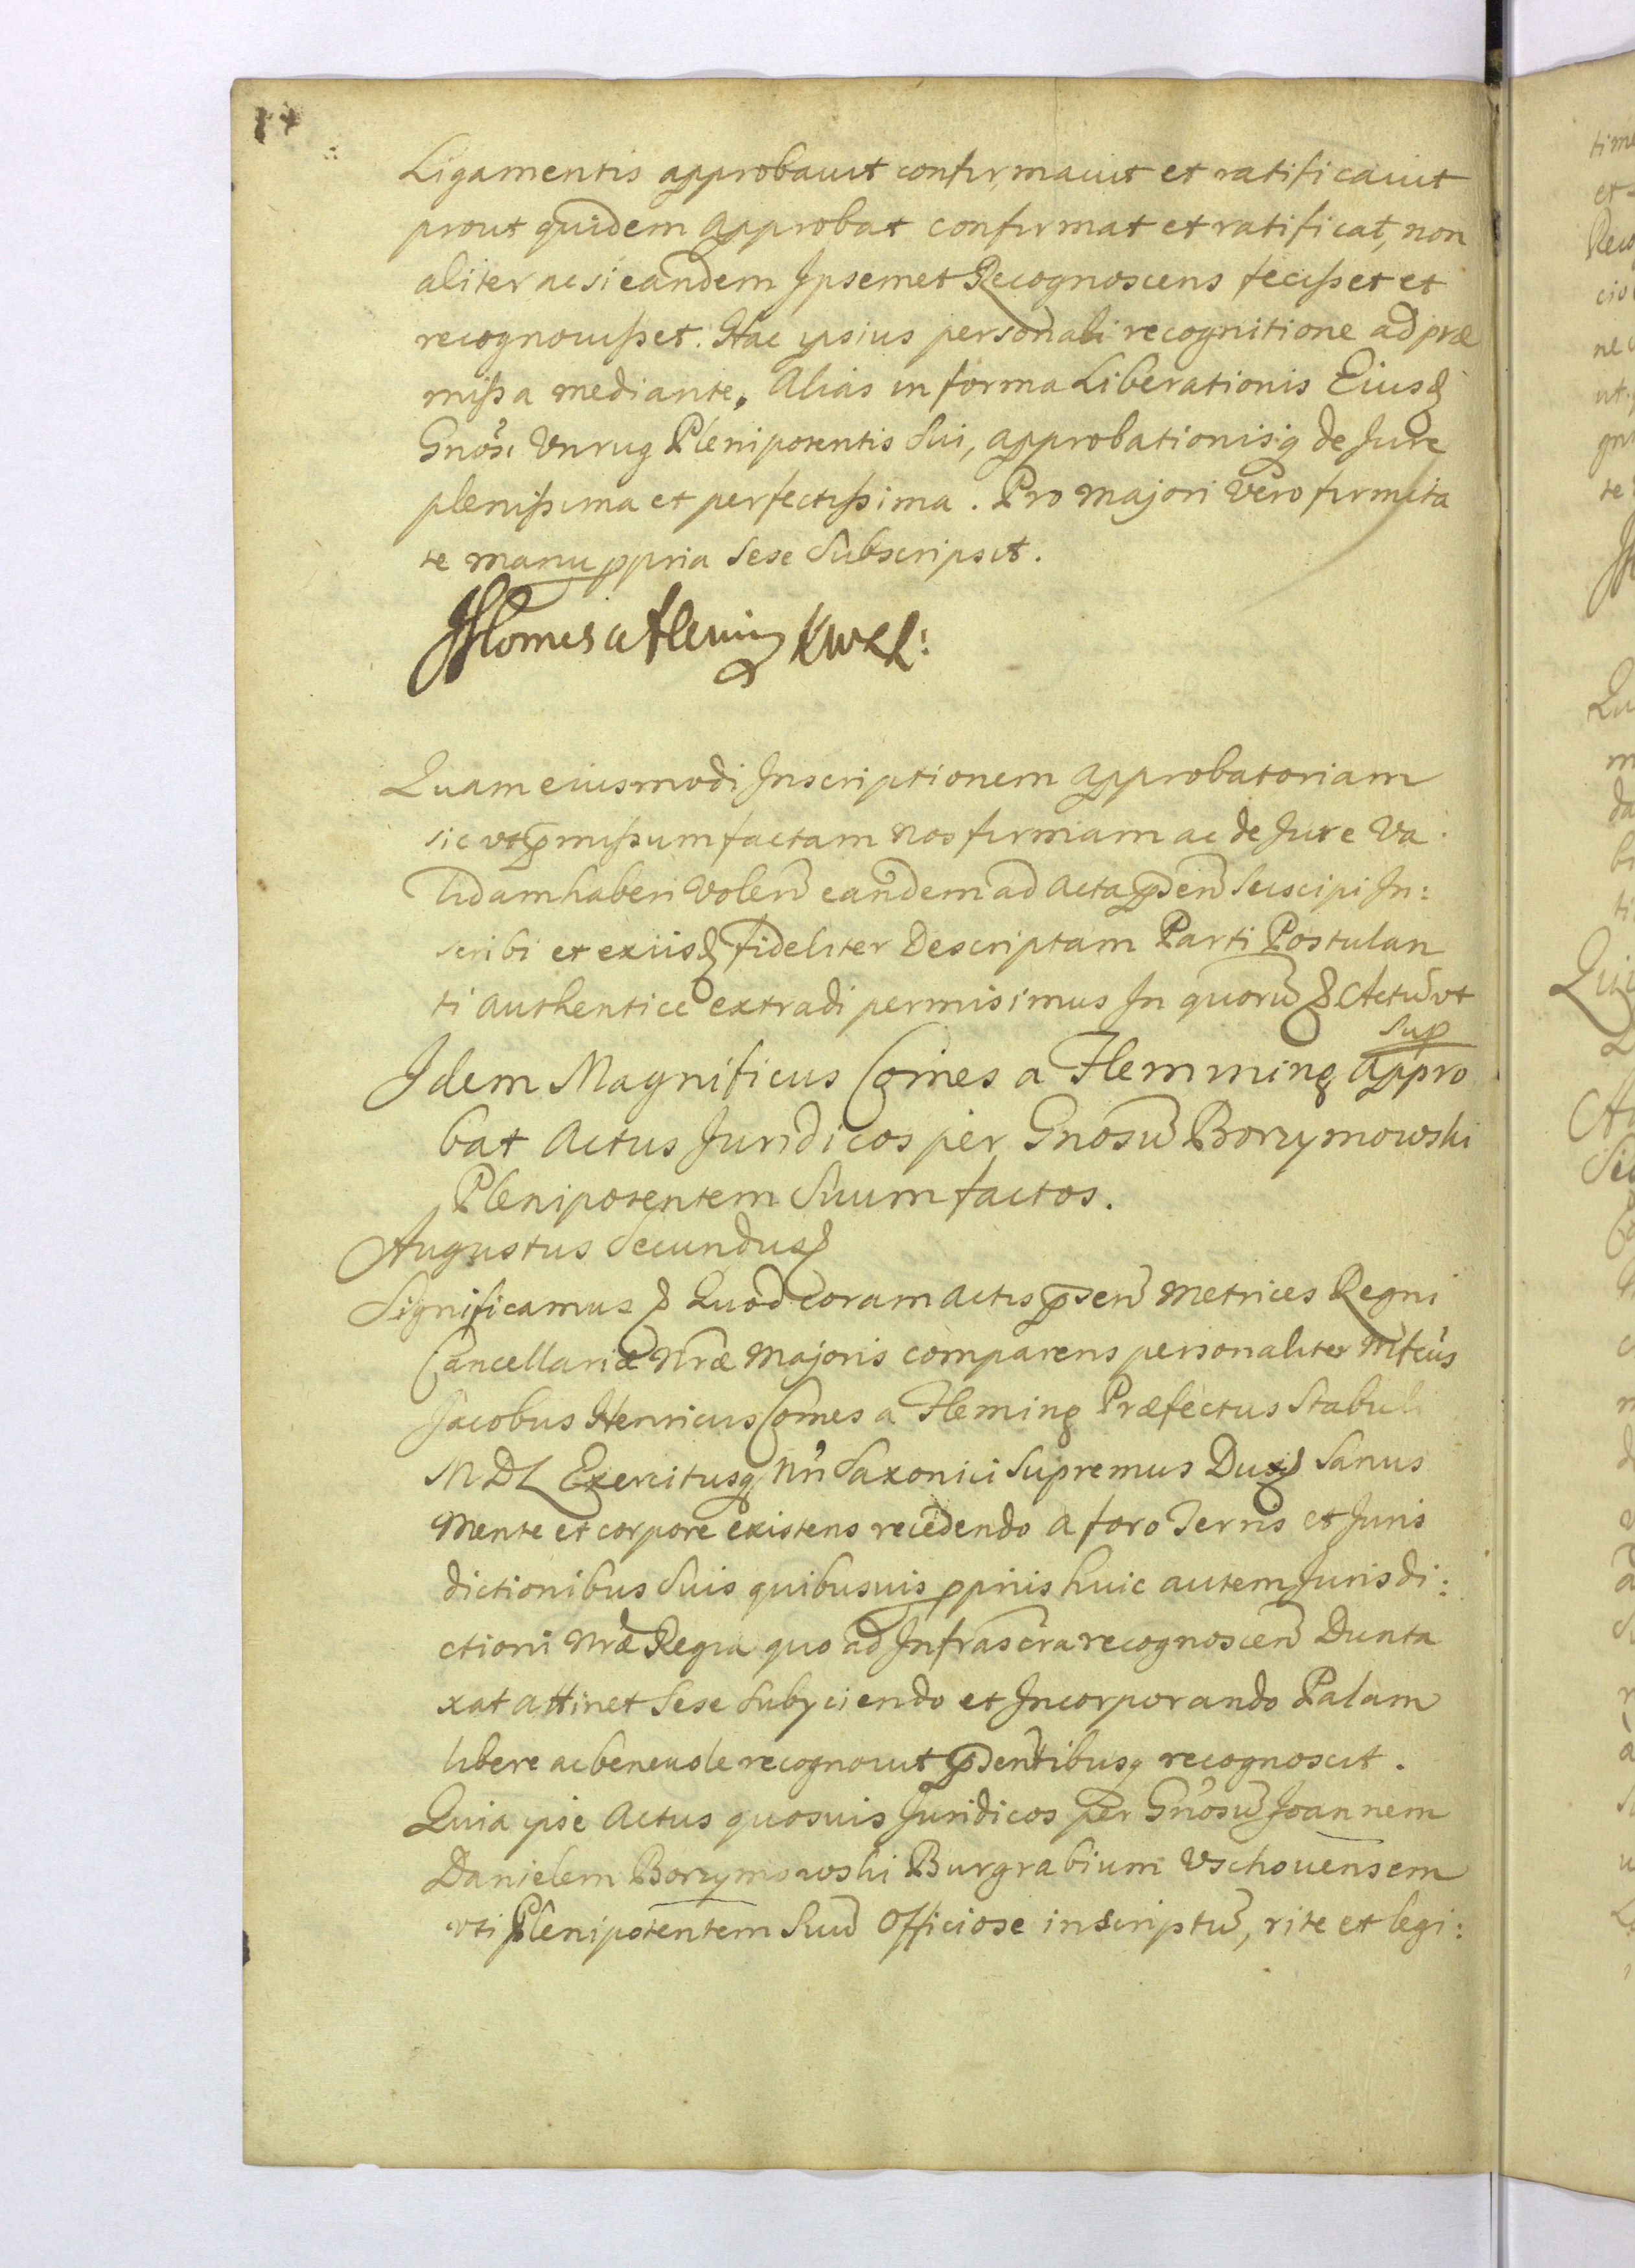 Ligamentis approbavit confirmavit et ratificavit
prout quidem approbat confirmat et ratificat, non
aliter ac si eandem Ipsemet Recognoscens fecisset et
recognovisset. Hac ipsius personali recognitione ad præ
missa mediante. Alias in forma Liberationis Eiusd
Gnosi Unrug Plenipotentis Sui, approbationisq de Jure
plenissima et perfectissima. Pro majori Vero firmita
te manu ppria Sese Subscripsit.
JHComes a Fleming KWXL:
Quam eiusmodi Inscriptionem approbatoriam
sic ut pmissum factam nos firmam ac de Jure Va
lidam haberi Volen eandem ad acta psen Suscipi In:
scribi et ex iisd fideliter Descriptam Parti Postulan
ti authentice extradi permisimus In quorū & Actū ut
sup
Idem Magnificus Comes a Flemming appro
bat Actus Juridicos per Gnosū Borzymowski
Plenipotentem Suum factos.
Augustus Secundus &
Significamus & Quod coram actis psen Metrices Regni
Cancellariæ Nræ Majoris comparens personaliter Mfcus
Jacobus Henricus Comes a Fleming Præfectus Stabuli
MDL Exercitusq Nri Saxonici Supremus Dux & Sanus
Mente et corpore existens recedendo a foro Terris et Juris
dictionibus Suis quibusvis ppriis huic autem Jurisdi:
ctioni Nræ Regia quo ad Infrascra recognoscen Dunta
xat attinet Sese Subyciendo et Incorporando Palam
libere ac benevole recognovit psentibusq recognoscit.
Quia ipse Actus quosvis Juridicos per Gnosū Joannem
Danielem Borzymowski Burgrabium Vschovensem
uti Plenipotentem Suū Officiose inscriptū, rite et legi: